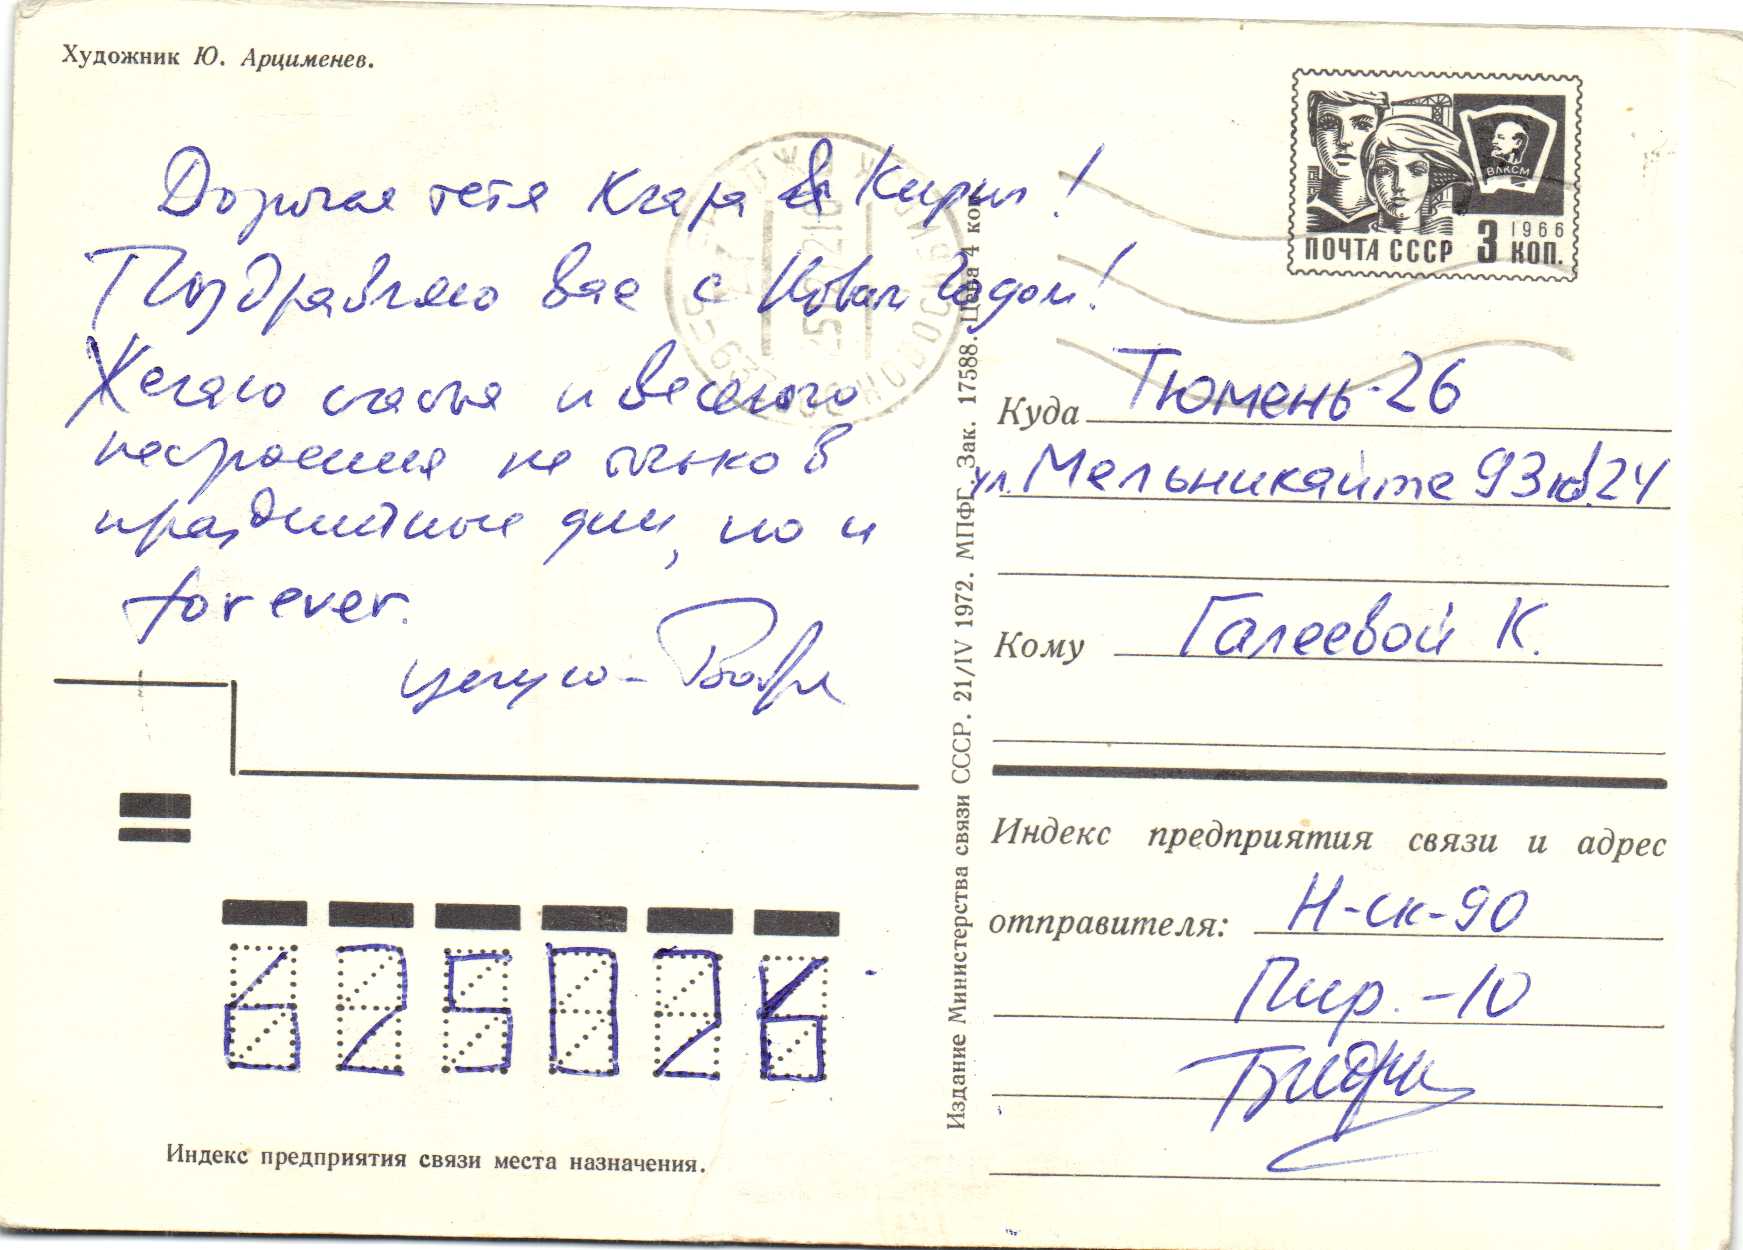 Художник Ю. Арцименев.
ВЛКСМ
1966
ПОЧТА СССР 3 КОП.
Дорогая тетя Клара и Кирил!
Поздравляю вас с Новым Годом!
Желаю счастья и веселого
настроения не только в
праздничные дни, но и
forever.
целую –
Издание Министерства связи СССР. 21/IV 1972. МПФГ. Зак. 17588. Цена 4 коп.
Куда Тюмень-26
ул. Мельникайте 93 24
Кому Галеевой К.
Индекс предприятия связи и адрес
отправителя: Н-ск-90
Пир. -10
625026
Индекс предприятия связи места назначения.